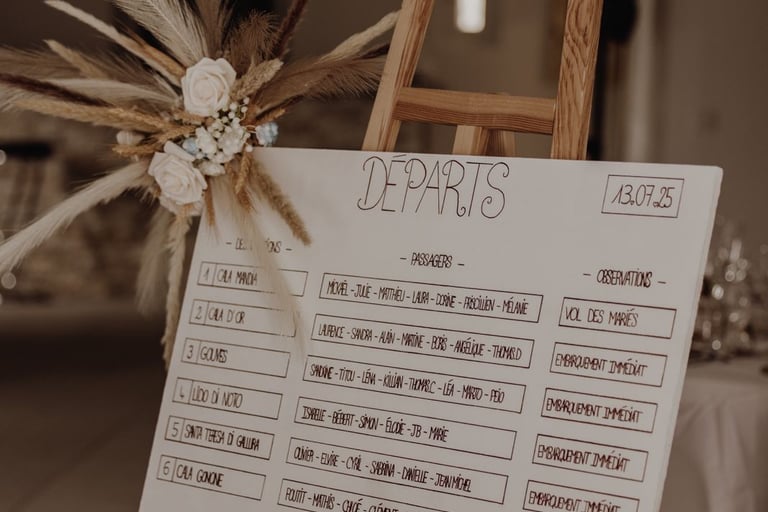 DÉPARTS
13.07.25
- PASSAGERS -
- OBSERVATIONS -
1 CALA MANDIA
MICKAËL - JULIE - MATTHIEU - LAURA - DORINE - PRISCILLIEN - MÉLANIE
VOL DES MARIÉS
2 CALA D'OR
LAURENCE - SANDRA - ALAIN - MARTINE - BORIS - ANGÉLIQUE - THOMAS.D
EMBARQUEMENT IMMÉDIAT
3 GOUVES
SANDRINE - TITOU - LÉNA - KILLIAN - THOMAS.C - LÉA - MARTO - PEIO
EMBARQUEMENT IMMÉDIAT
4 LIDO DI NOTO
ISABELLE - BÉBERT - SIMON - ÉLODIE - JB - MARIE
EMBARQUEMENT IMMÉDIAT
5 SANTA TERESA DI GALLURA
OLIVIER - ELVIRE - CYRIL - SABRINA - DANIELLE - JEAN MICHEL
EMBARQUEMENT IMMÉDIAT
6 CALA GONONE
POUTIT - MATHIS - CHLOÉ - CLÉMENT
EMBARQUEMENT IMMÉDIAT